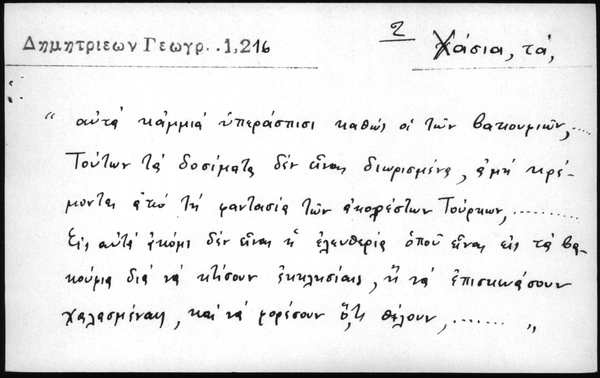 Δημητριεων Γεωγρ..1,216
2 Χάσια, τά,
“ αὐτὰ κἀμμιά ὑπεράσπισι καθὼς οἱ τῶν βακουμιῶν,...
Τούτων τὰ δοσίματα δέν εἶναι διωρισμένα, ἀμὴ κρέ-
μονται ἀπό τὴ φαντασία τῶν ἀκορέστων Τούρκων,........
Εἰς αὐτὰ ἀκόμι δέν εἶναι ἡ ἐλευθερία ὁποῦ εἶναι εἰς τὰ βα-
κούμια διὰ νὰ κτίσουν ἐκκλησίαις, ἢ νὰ ἐπισκευάσουν
χαλασμέναις, καὶ νὰ φορέσουν ὅ,τι θέλουν,....... „